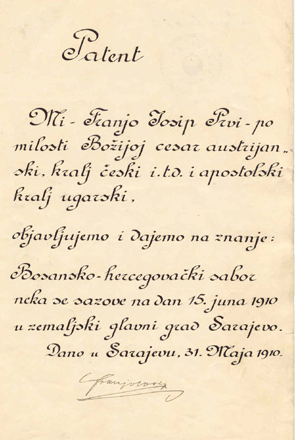 Patent
Mi - Franjo Josip Prvi - po
milosti Božijoj cesar austrijan-
ski, kralj česki i.t.d. i apostolski
kralj ugarski,
objavljujemo i dajemo na znanje:
Bosansko-hercegovački sabor
neka se sazove na dan 15. juna 1910
u zemaljski glavni grad Sarajevo.
Dano u Sarajevu, 31. Maja 1910.